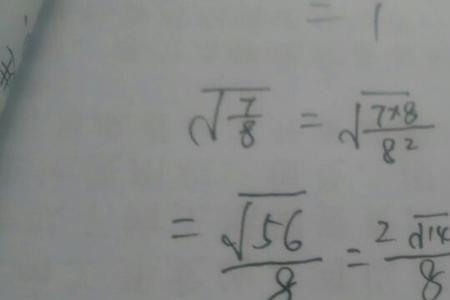 = 1
√(7/8) = √(7×8/8²)
= √56/8 = 2√14/8